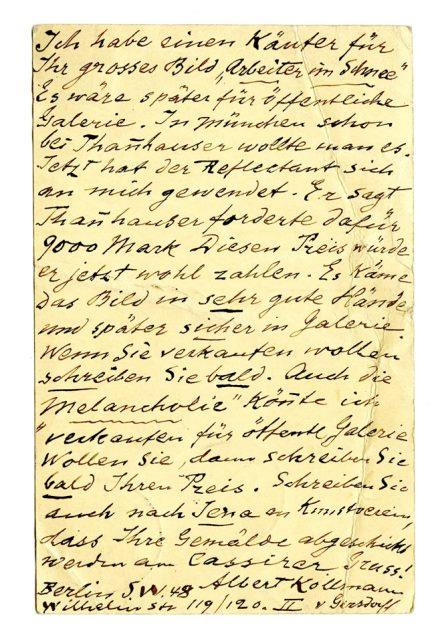 Ich habe einen Käufer für
Ihr grosses Bild „Arbeiter im Schnee"
Es wäre später für öffentliche
Galerie. In München schon
bei Thannhauser wollte man es.
Jetzt hat der Reflectant sich
an mich gewendet. Er sagt
Thannhauser forderte dafür
9000 Mark Diesen Preis würde
er jetzt wohl zahlen. Es käme
das Bild in sehr gute Hände
und später sicher in Galerie
Wenn Sie verkaufen wollen
schreiben Sie bald. Auch die
Melancholie" könnte ich
"verkaufen für öffentl Galerie
Wollen Sie, dann schreiben Sie
bald Ihren Preis. Schreiben Sie
auch nach Jena an Kunstverein,
dass Ihre Gemälde abgeschickt
werden an Cassirer Gruss!
Berlin S.W. 48 Albert Kollmann
Wilhelm str 119/120. II v Gersdorff